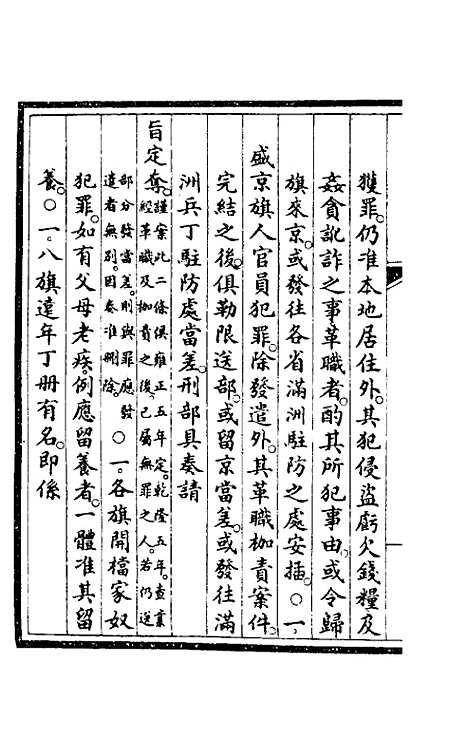 獲罪。仍准本地居住外。其犯侵盜虧欠錢糧及
姦貪訛詐之事革職者。酌其所犯事由。或令歸
旗來京。或發往各省滿洲駐防之處安插。○一、
盛京旗人官員犯罪。除發遣外。其革職枷責案件。
完結之後。俱勒限送部。或留京當差。或發往滿
洲兵丁駐防處當差。刑部具奏請
旨定奪。謹案此二條俱雍正五年定。乾隆五年。查業
經革職及枷責之後。已屬無罪之人。若仍送
部分發當差。則與罪應發
遣者無別。因奏准刪除。○一、各旗開檔家奴
犯罪。如有父母老疾。例應留養者。一體准其留
養。○一、八旗遠年丁冊有名。即係